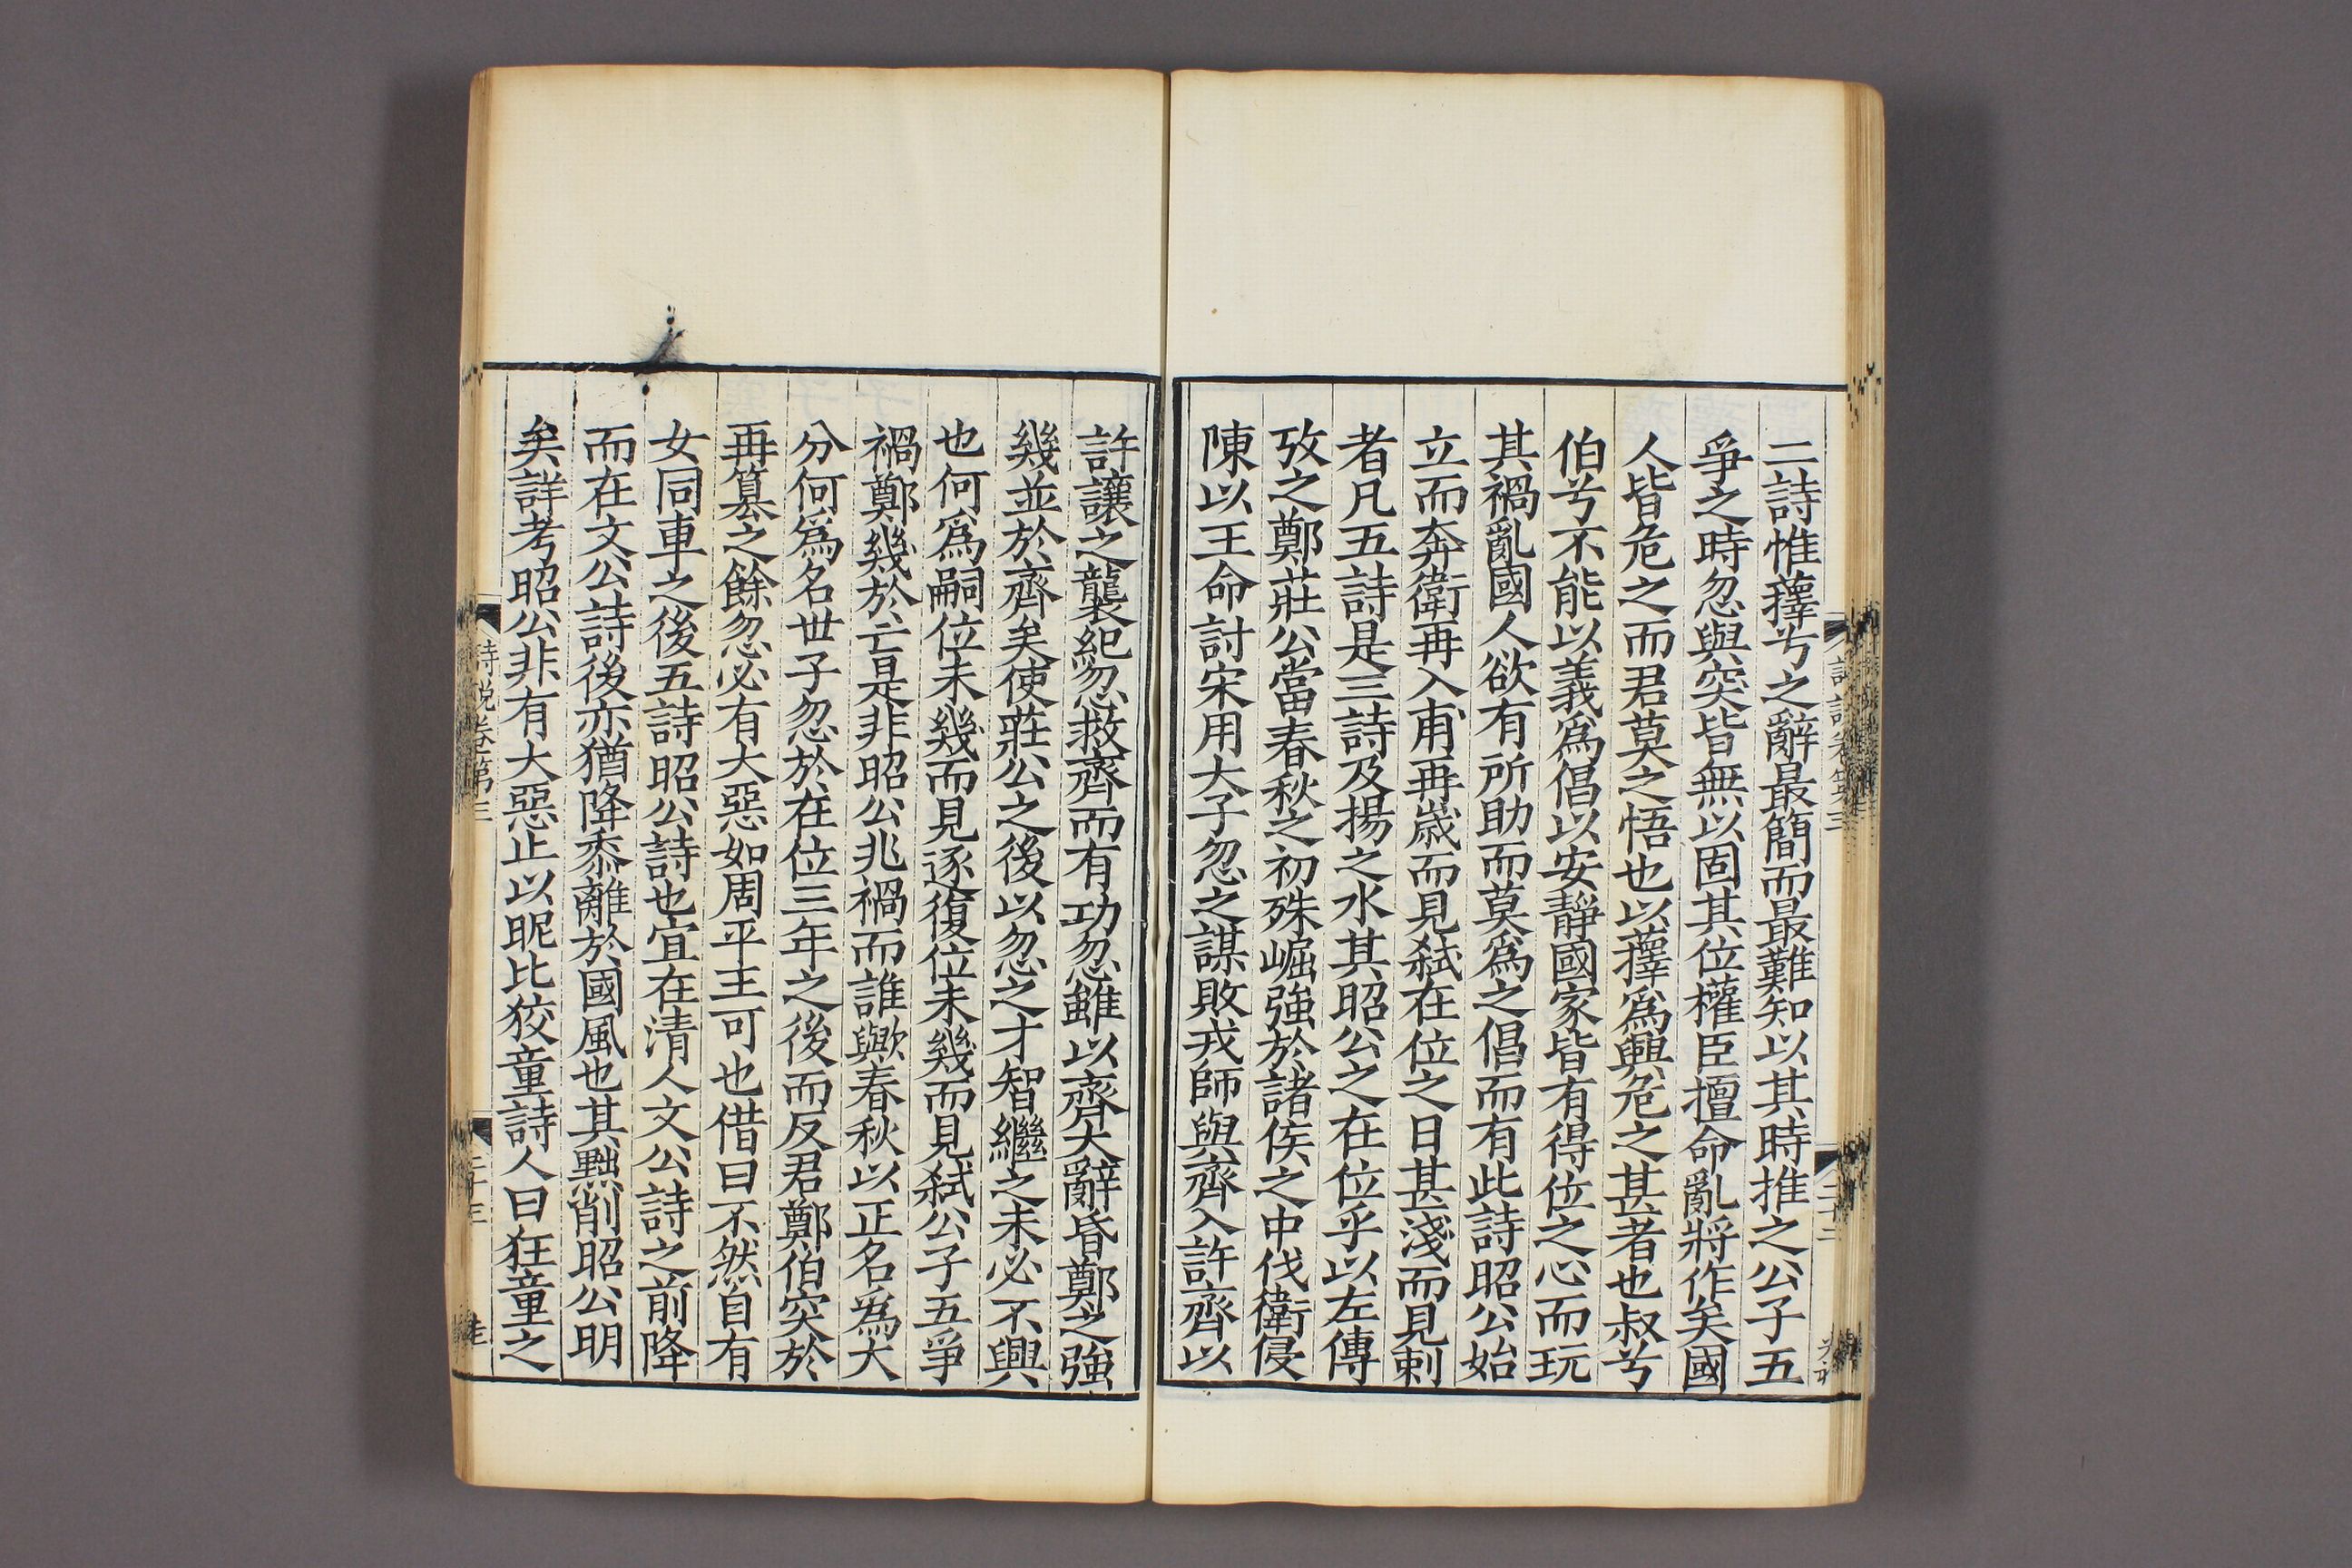 二詩惟蘀兮之辭最簡而最難知以其時推之公子五
爭之時忽與突皆無以固其位權臣擅命亂將作矣國
人皆危之而君莫之悟也以蘀爲興危之甚者也叔兮
伯兮不能以義爲倡以安靜國家皆有得位之心而玩
其禍亂國人欲有所助而莫爲之倡而有此詩昭公始
立而奔衛再入甫再歲而見弒在位之日甚淺而見刺
者凡五詩是三詩及揚之水其昭公之在位乎以左傳
攷之鄭莊公當春秋之初殊崛強於諸侯之中伐衛侵
陳以王命討宋用大子忽之謀敗戎師與齊入許齊以
許讓之襲紀忽救齊而有功忽雖以齊大辭昏鄭之強
幾並於齊矣使莊公之後以忽之才智繼之未必不興
也何爲嗣位未幾而見逐復位未幾而見弒公子五爭
禍鄭幾於亡是非昭公兆禍而誰歟春秋以正名爲大
分何爲名世子忽於在位三年之後而反君鄭伯突於
再篡之餘忽必有大惡如周平王可也借曰不然自有
女同車之後五詩昭公詩也宜在清人文公詩之前降
而在文公詩後亦猶降黍離於國風也其黜削昭公明
矣詳考昭公非有大惡止以昵比狡童詩人曰狂童之
詩說卷第三
二十三